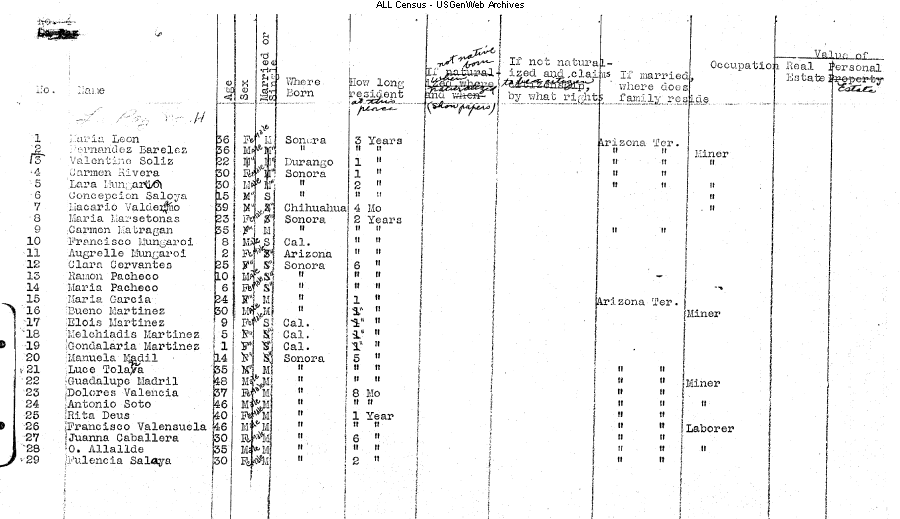 ALL Census - USGenWeb Archives
6
not native
born
Value of
If not natural-
ized and claims If married, Occupation Real Personal
Where How long where does Estate Property
No. Name Age Sex Married or Single Born resident at this by what rights family reside Estate
and when (show papers)
1 Maria Leon 36 Female M Sonora 3 Years Arizona Ter.
2 Fernandez Barelez 36 Male M " " " " " Miner
13 Valentino Soliz 22 M" M" Durango 1 " " " "
4 Carmen Rivera 30 Female M" Sonora 1 " " "
5 Lara Mungario 30 Male M" " 2 " " " "
6 Concepcion Saloya 15 M" S " " " "
7 Macario Valdenmo 39 M" S" Chihuahua 4 Mo "
8 Maria Marsetonas 23 Female S" Sonora 2 Years
9 Carmen Matragan 35 F" M " " " " "
10 Francisco Mungaroi 8 Male S Cal. " "
11 Augrelle Mungaroi 2 Female S Arizona " "
12 Clara Cervantes 25 F" S" Sonora 6 "
13 Ramon Pacheco 10 Male S" " " "
14 Maria Pacheco 6 Female S" " " "
15 Maria Garcia 24 F" M " 1 " Arizona Ter.
16 Bueno Martinez 30 Male M " 1" " Miner
17 Elois Martinez 9 Female S Cal. 1" "
18 Melchiadis Martinez 5 S" Cal. 1" "
19 Gondalaria Martinez 1 S" Cal. 1" "
20 Manuela Madil 14 S" Sonora 5 "
21 Luce Tolaya 35 M " " " " "
22 Guadalupo Madril 48 Male M " " " " " Miner
23 Dolores Valencia 37 Female M " 8 Mo " "
24 Antonio Soto 46 Male M " " " " " "
25 Rita Deus 40 Female M " 1 Year " "
26 Francisco Valensuela 46 Male M " " " " " Laborer
27 Juanna Caballera 30 Female M " 6 " " "
28 O. Allallde 35 Male M " " " " " "
29 Fulencia Salaya 30 Female M " 2 " " "